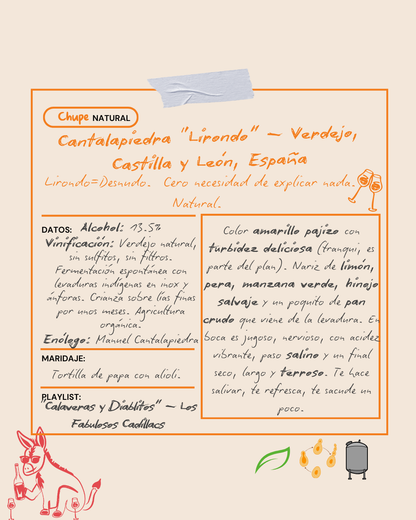 Chupe NATURAL
Cantalapiedra "Lirondo" – Verdejo,
Castilla y León, España
Lirondo=Desnudo. Cero necesidad de explicar nada.
Natural.
DATOS: Alcohol: 13.5%
Vinificación: Verdejo natural,
sin sulfitos, sin filtros.
Fermentación espontánea con
levaduras indígenas en inox y
ánforas. Crianza sobre lías finas
por unos meses. Agricultura
orgánica.
Enólogo: Manuel Cantalapiedra
MARIDAJE:
Tortilla de papa con alioli.
PLAYLIST:
"Calaveras y Diablitos" – Los
Fabulosos Cadillacs
Color amarillo pajizo con
turbidez deliciosa (tranqui, es
parte del plan). Nariz de limón,
pera, manzana verde, hinojo
salvaje y un poquito de pan
crudo que viene de la levadura. En
boca es jugoso, nervioso, con acidez
vibrante, paso salino y un final
seco, largo y terroso. Te hace
salivar, te refresca, te sacude un
poco.